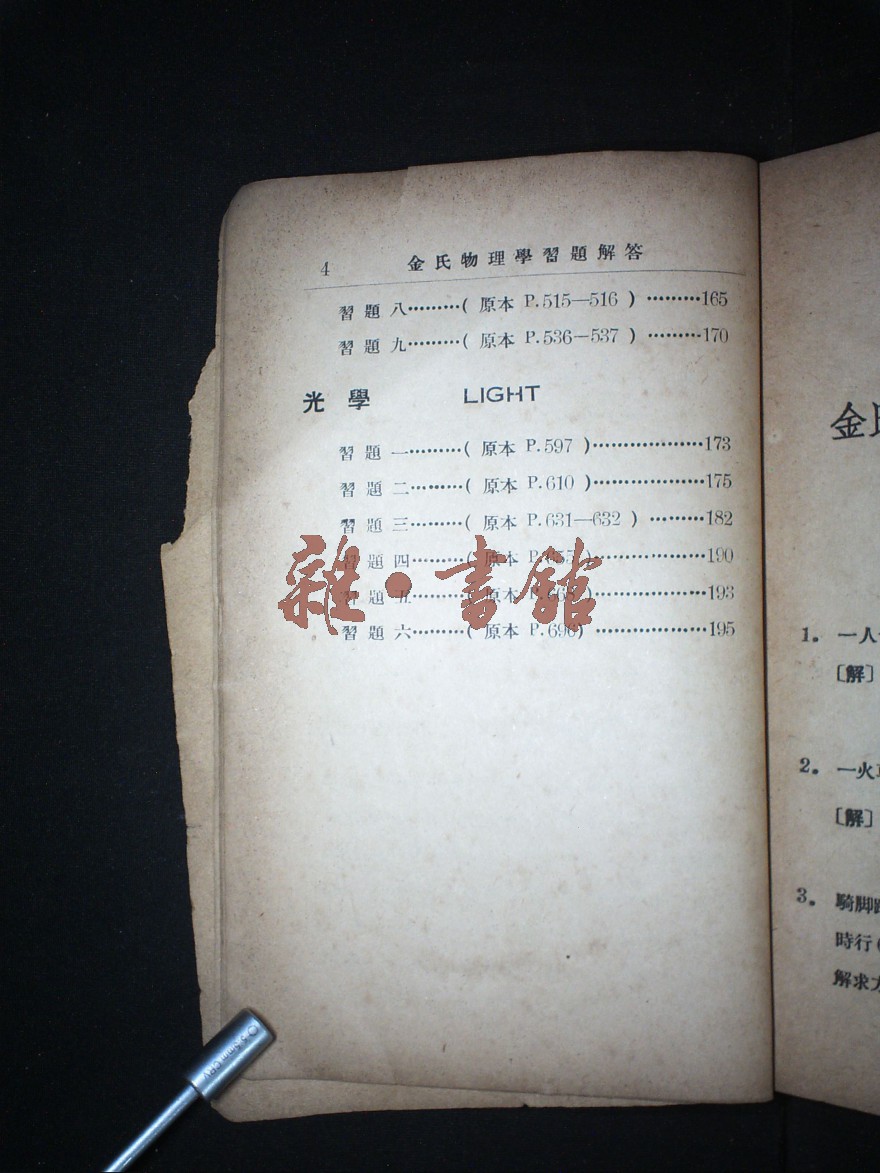 4 金氏物理學習題解答
習題八………( 原本 P.515—516 ) ………165
習題九………( 原本 P.536—537 ) ………170
光學 LIGHT
習題一………( 原本 P.597 )………………173
習題二………( 原本 P.610 )………………175
習題三………( 原本 P.631—632 ) ………182
習題四………( 原本 )………………190
習題五………( 原本 )………………193
習題六………( 原本 P.696) ………………195
雜·書館
金
1. 一人
[解]
2. 一火
[解]
3. 騎脚
時行(
解求